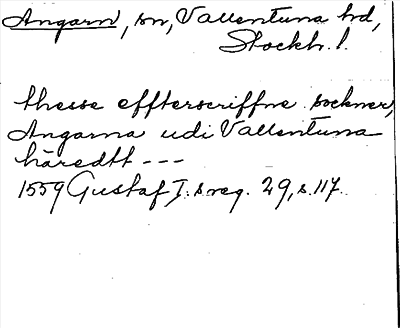 Angarn, sn, Vallentuna hd,
Stockh. l.
thesse effterscriffne sockner,
Angarna udi Vallentuna
häredtt ---
1559 Gustaf I:s reg. 29, s. 117.